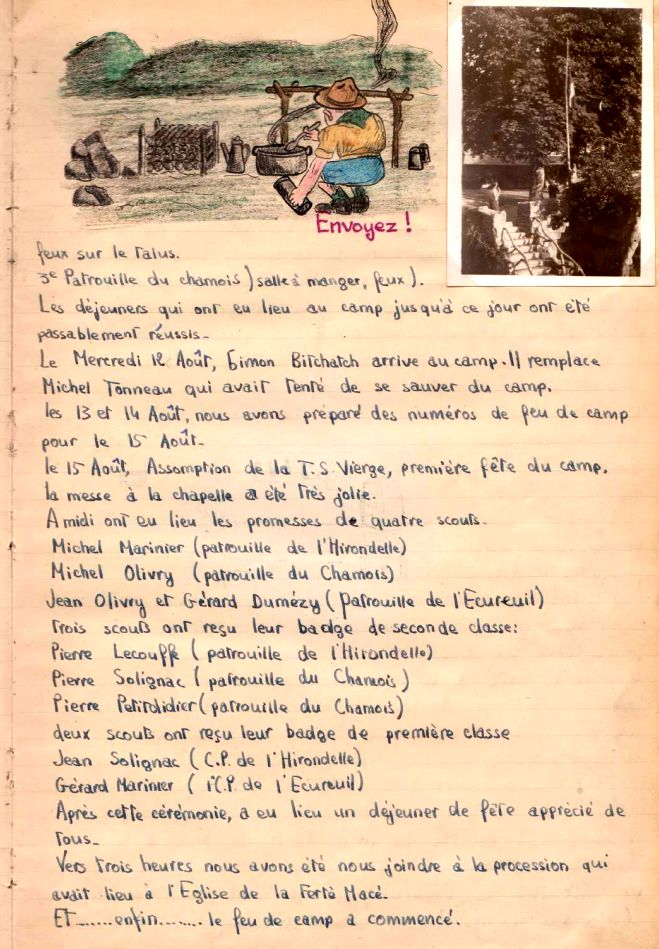 Envoyez !
feux sur le talus.
3e Patrouille du chamois ) salle à manger, feux ).
Les déjeuners qui ont eu lieu au camp jusqu'à ce jour ont été
passablement réussis.
Le Mercredi 12 Août, Simon Bitchatch arrive au camp. Il remplace
Michel Tonneau qui avait tenté de se sauver du camp.
les 13 et 14 Août, nous avons préparé des numéros de feu de camp
pour le 15 Août.
le 15 Août, Assomption de la T.S. Vierge, première fête du camp.
la messe à la chapelle a été très jolie.
A midi ont eu lieu les promesses de quatre scouts.
Michel Marinier (patrouille de l'Hirondelle)
Michel Olivry (patrouille du Chamois)
Jean Olivry et Gérard Dumézy (Patrouille de l'Ecureuil)
trois scouts ont reçu leur badge de seconde classe:
Pierre Lecouffe (patrouille de l'Hirondelle)
Pierre Solignac (patrouille du Chamois)
Pierre Petitdidier (patrouille du Chamois)
deux scouts ont reçu leur badge de première classe
Jean Solignac (C.P. de l'Hirondelle)
Gérard Marinier (l'C.P. de l'Ecureuil)
Après cette cérémonie, a eu lieu un déjeuner de fête apprécié de
tous.
Vers trois heures nous avons été nous joindre à la procession qui
avait lieu à l'Eglise de la Ferté Macé.
Et.......enfin........ le feu de camp a commencé.